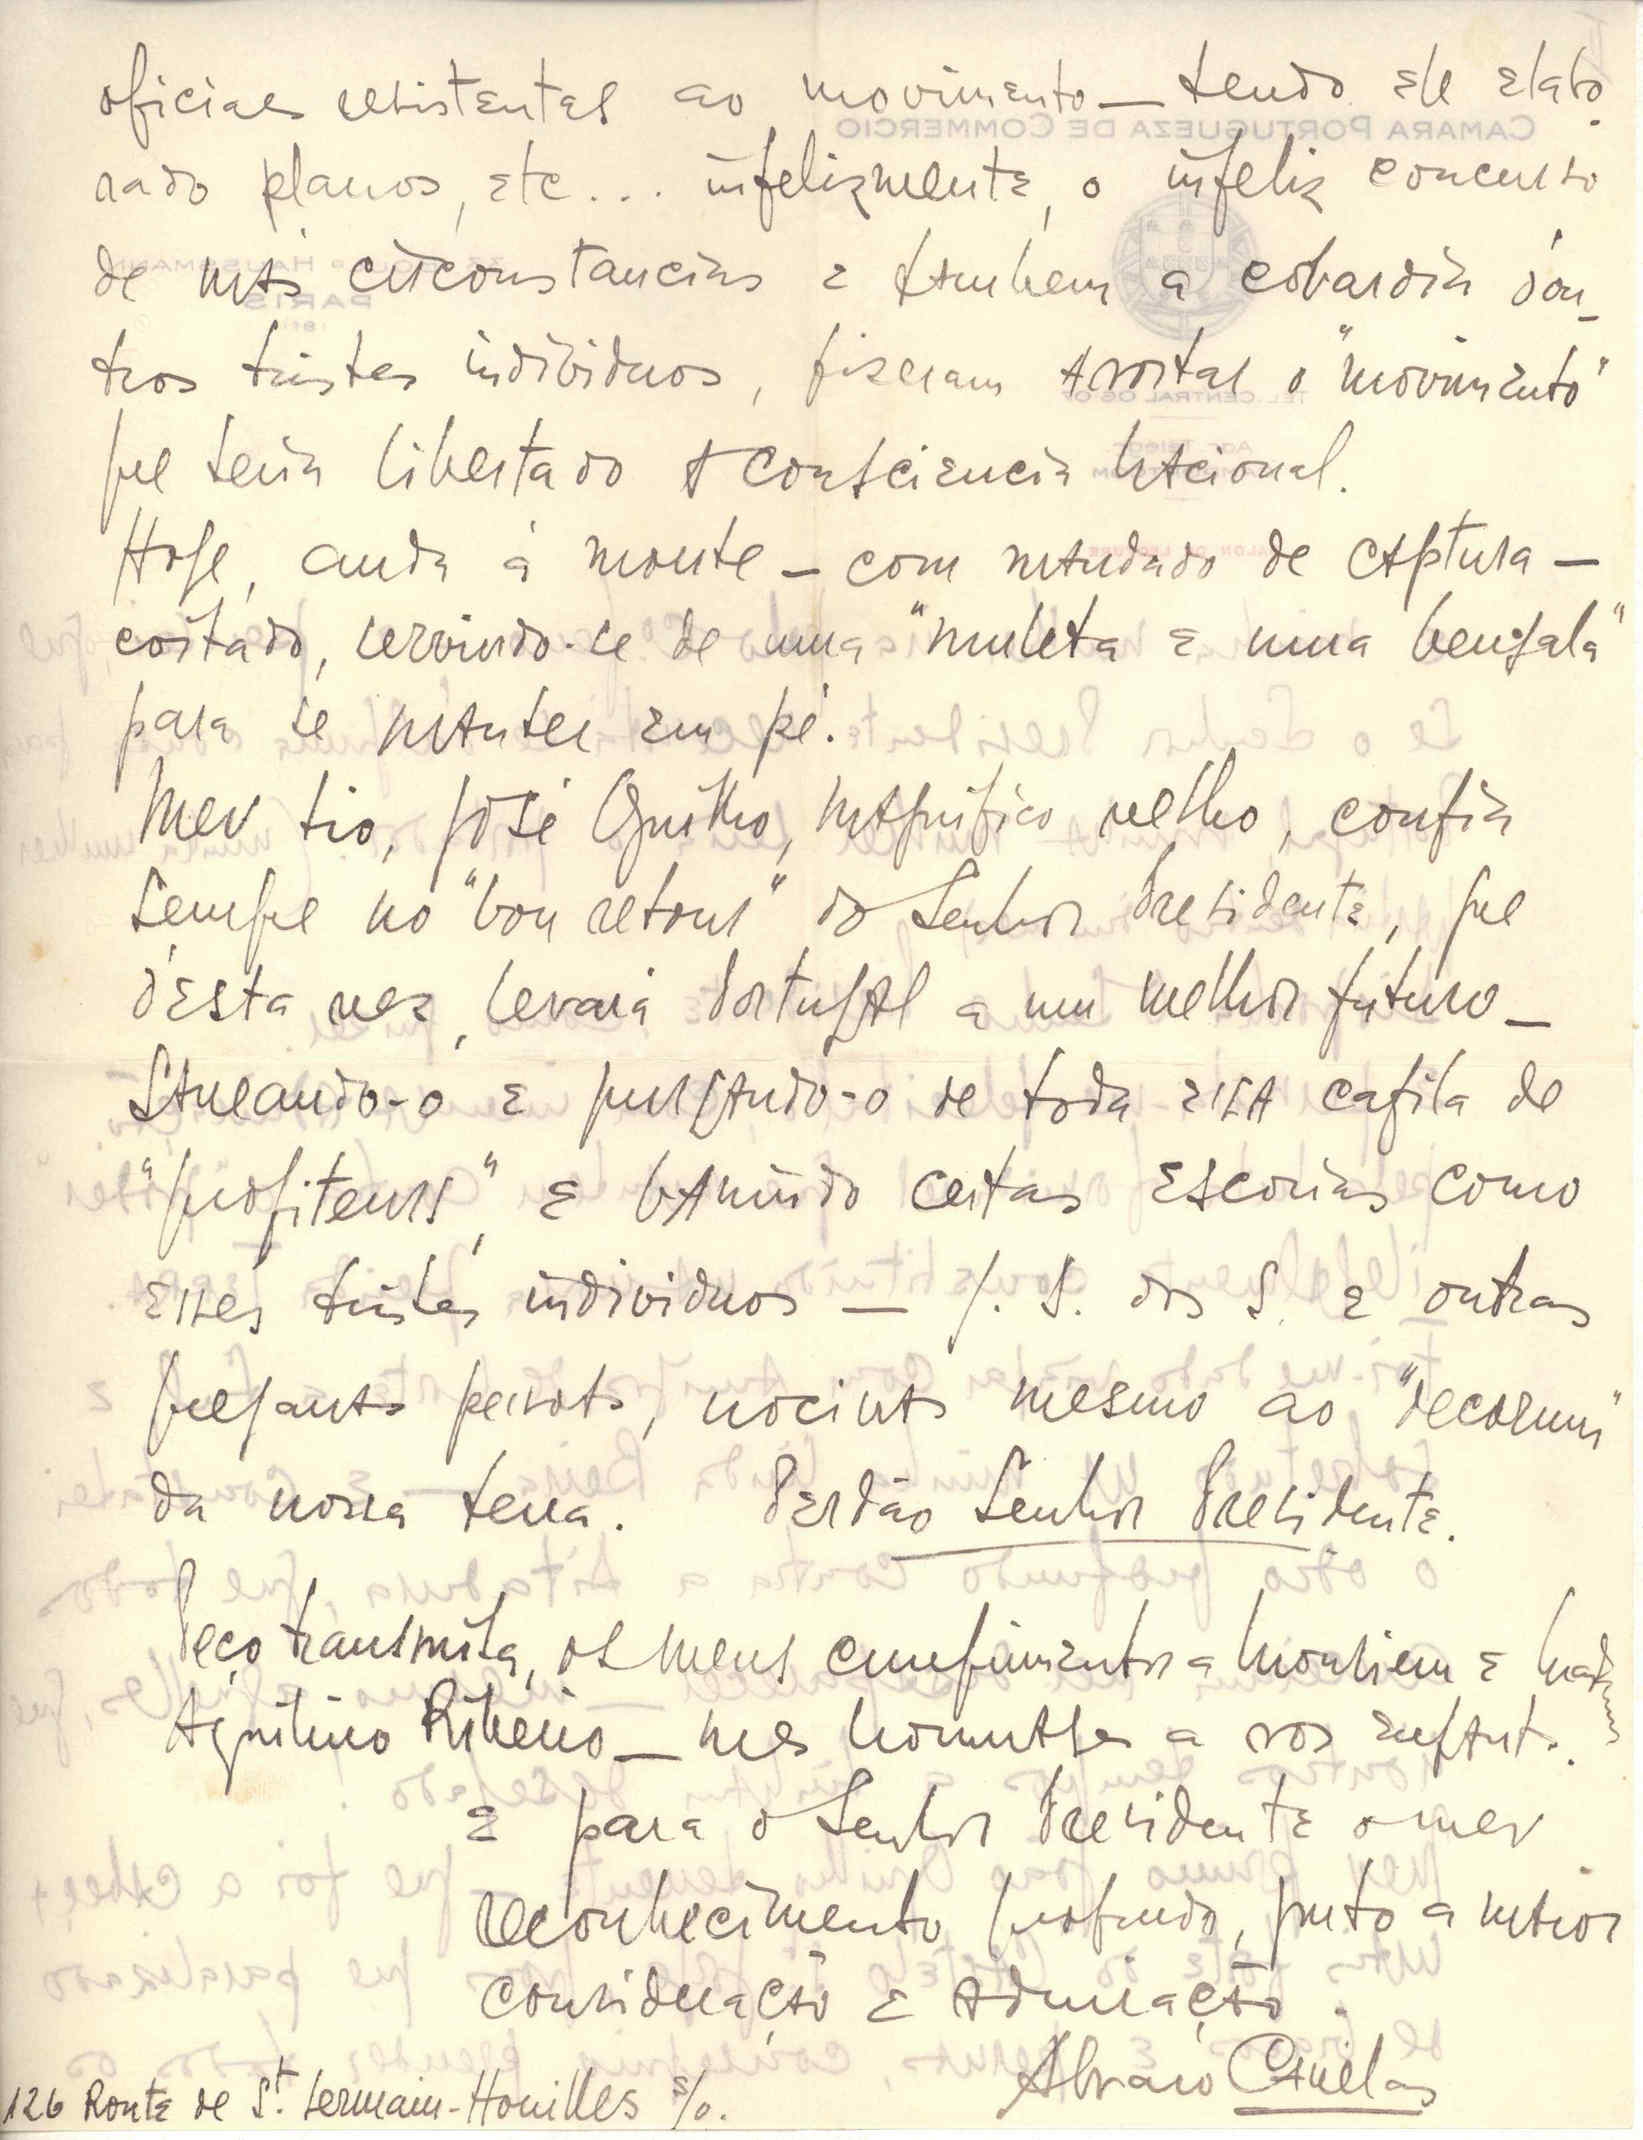 oficiaes resistentes ao movimento — tendo ele elabo-
rado planos, etc... infelizmente, o infeliz concurso
de más circonstancias e tambem a cobardia d'ou-
tros tristes individuos, fizeram abortar o "movimento"
que teria libertado a consciencia nacional.
Hoje, anda á monte — com mandado de captura —
coitado, servindo-se de uma "muleta e uma bengala"
para se manter em pé.
Meu tio, José magnifico velho, confia
sempre no "bon retour" do Senhor Presidente, que
d'esta vez, levará Portugal a um melhor futuro —
Saneando-o e purgando-o de toda essa cafila de
"profiteurs", e banindo certas escorias como
esses tristes individuos — J. S. dos S. e outras
nocivas mesmo ao "decorum"
da nossa terra. Perdão Senhor Presidente.
Peço transmita, os meus cumprimentos a Monsieur e Madame
Aquilino Ribeiro — mes hommages a vos enfants.
e para o Senhor Presidente o meu
reconhecimento profundo, junto a maior
consideração e admiração.
Alvaro
126 Route de St. Germain - Houilles S/O.
CAMARA PORTUGUEZA DE COMMERCIO
HAUSSMANN
PARIS